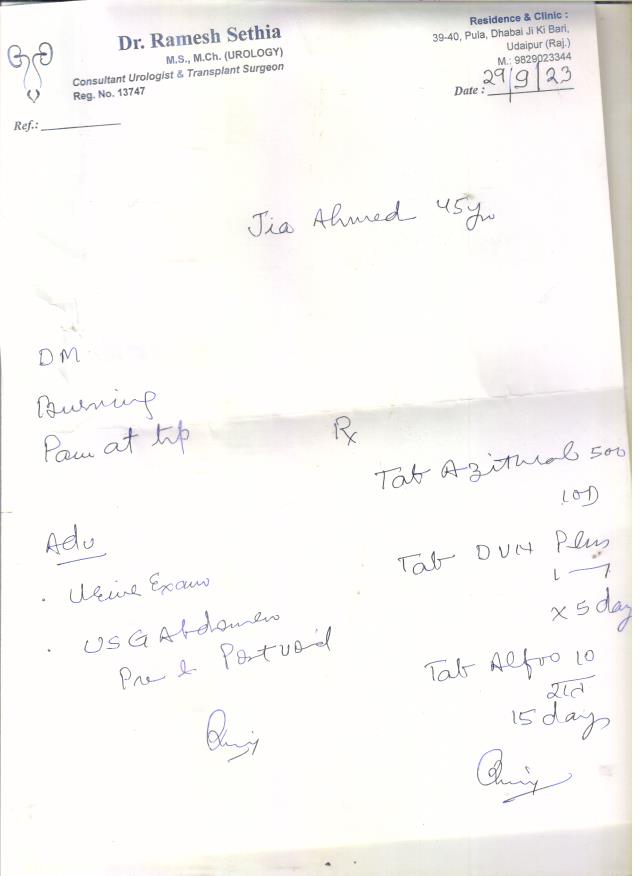 Dr. Ramesh Sethia
M.S., M.Ch. (UROLOGY)
Consultant Urologist & Transplant Surgeon
Reg. No. 13747
Residence & Clinic :
39-40, Pula, Dhabai Ji Ki Bari,
Udaipur (Raj.)
M.: 9829023344
Date : 29/9/23
Ref.:
Jia Ahmed 45yr
DM
Burning
Pain at tip
Adv
. Urine Exam
. USG Abdomen
Pre & Post void
Rx
Tab Azithral 500
1 OD
Tab DVN Plus
1 — 1
x 5 day
Tab Alfoo 10
रात
15 days